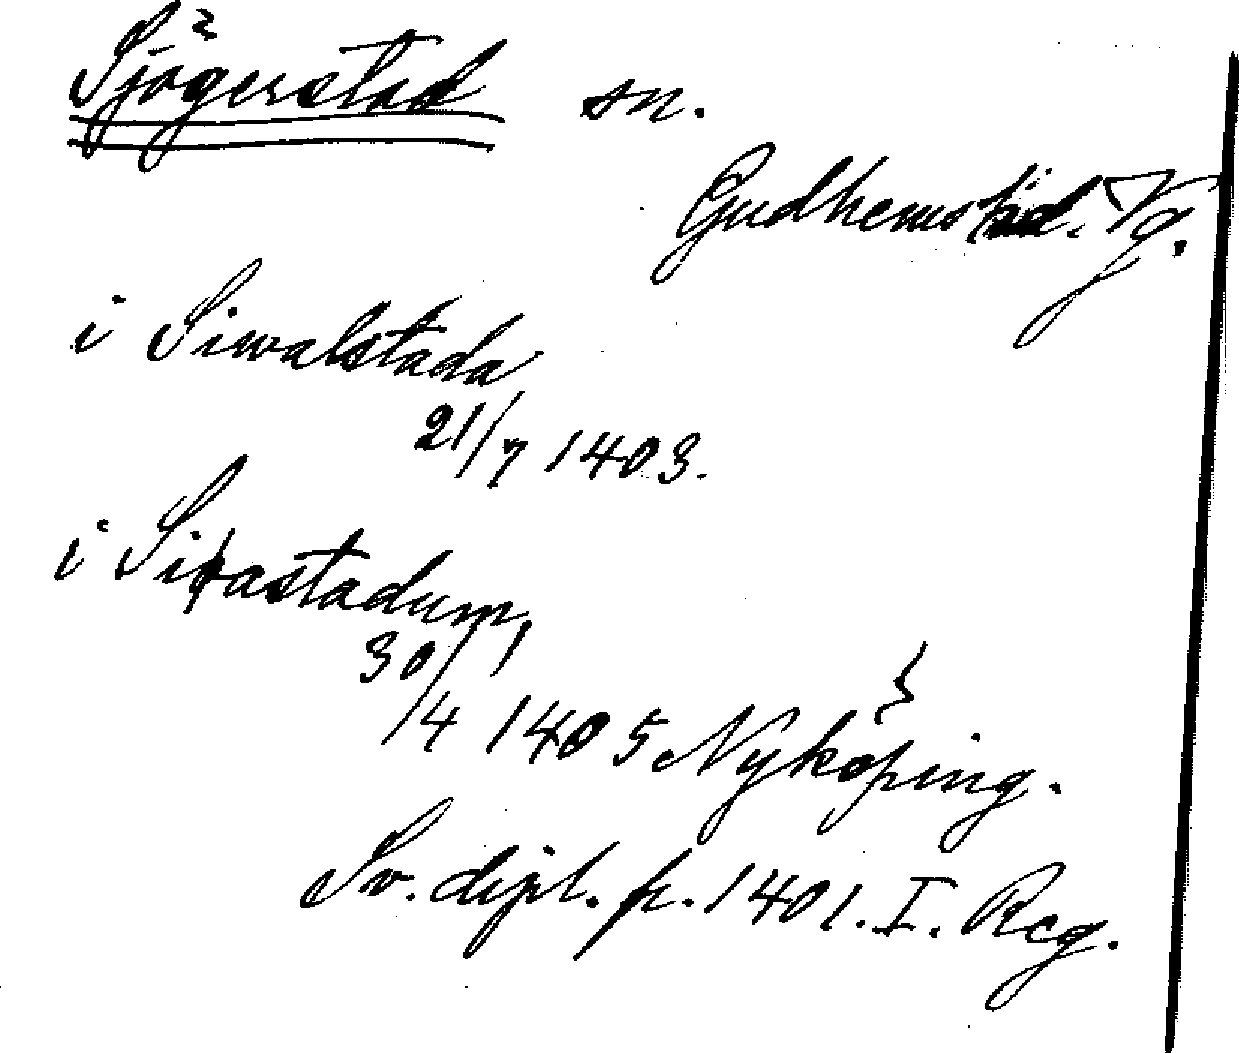 Sjögerstad sn.
Gudhems hd. Vg.
i Siwalstada
21/7 1403.
i Sirastadum,
30/4 1405 Nyköping.
Sv. dipl. fr. 1401. I. Reg.